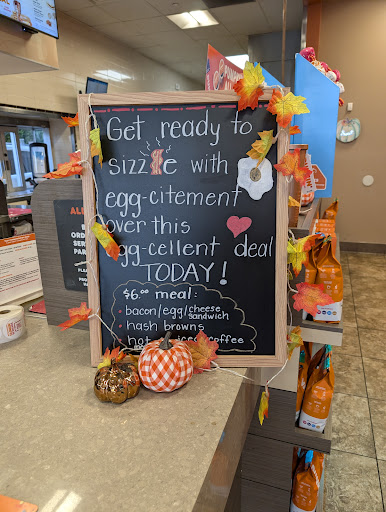 Get ready to
sizzle with
egg-citement
over this
egg-cellent deal
TODAY!
$6.00 meal:
• bacon/egg/cheese
sandwich
• hash browns
hot
iced coffee